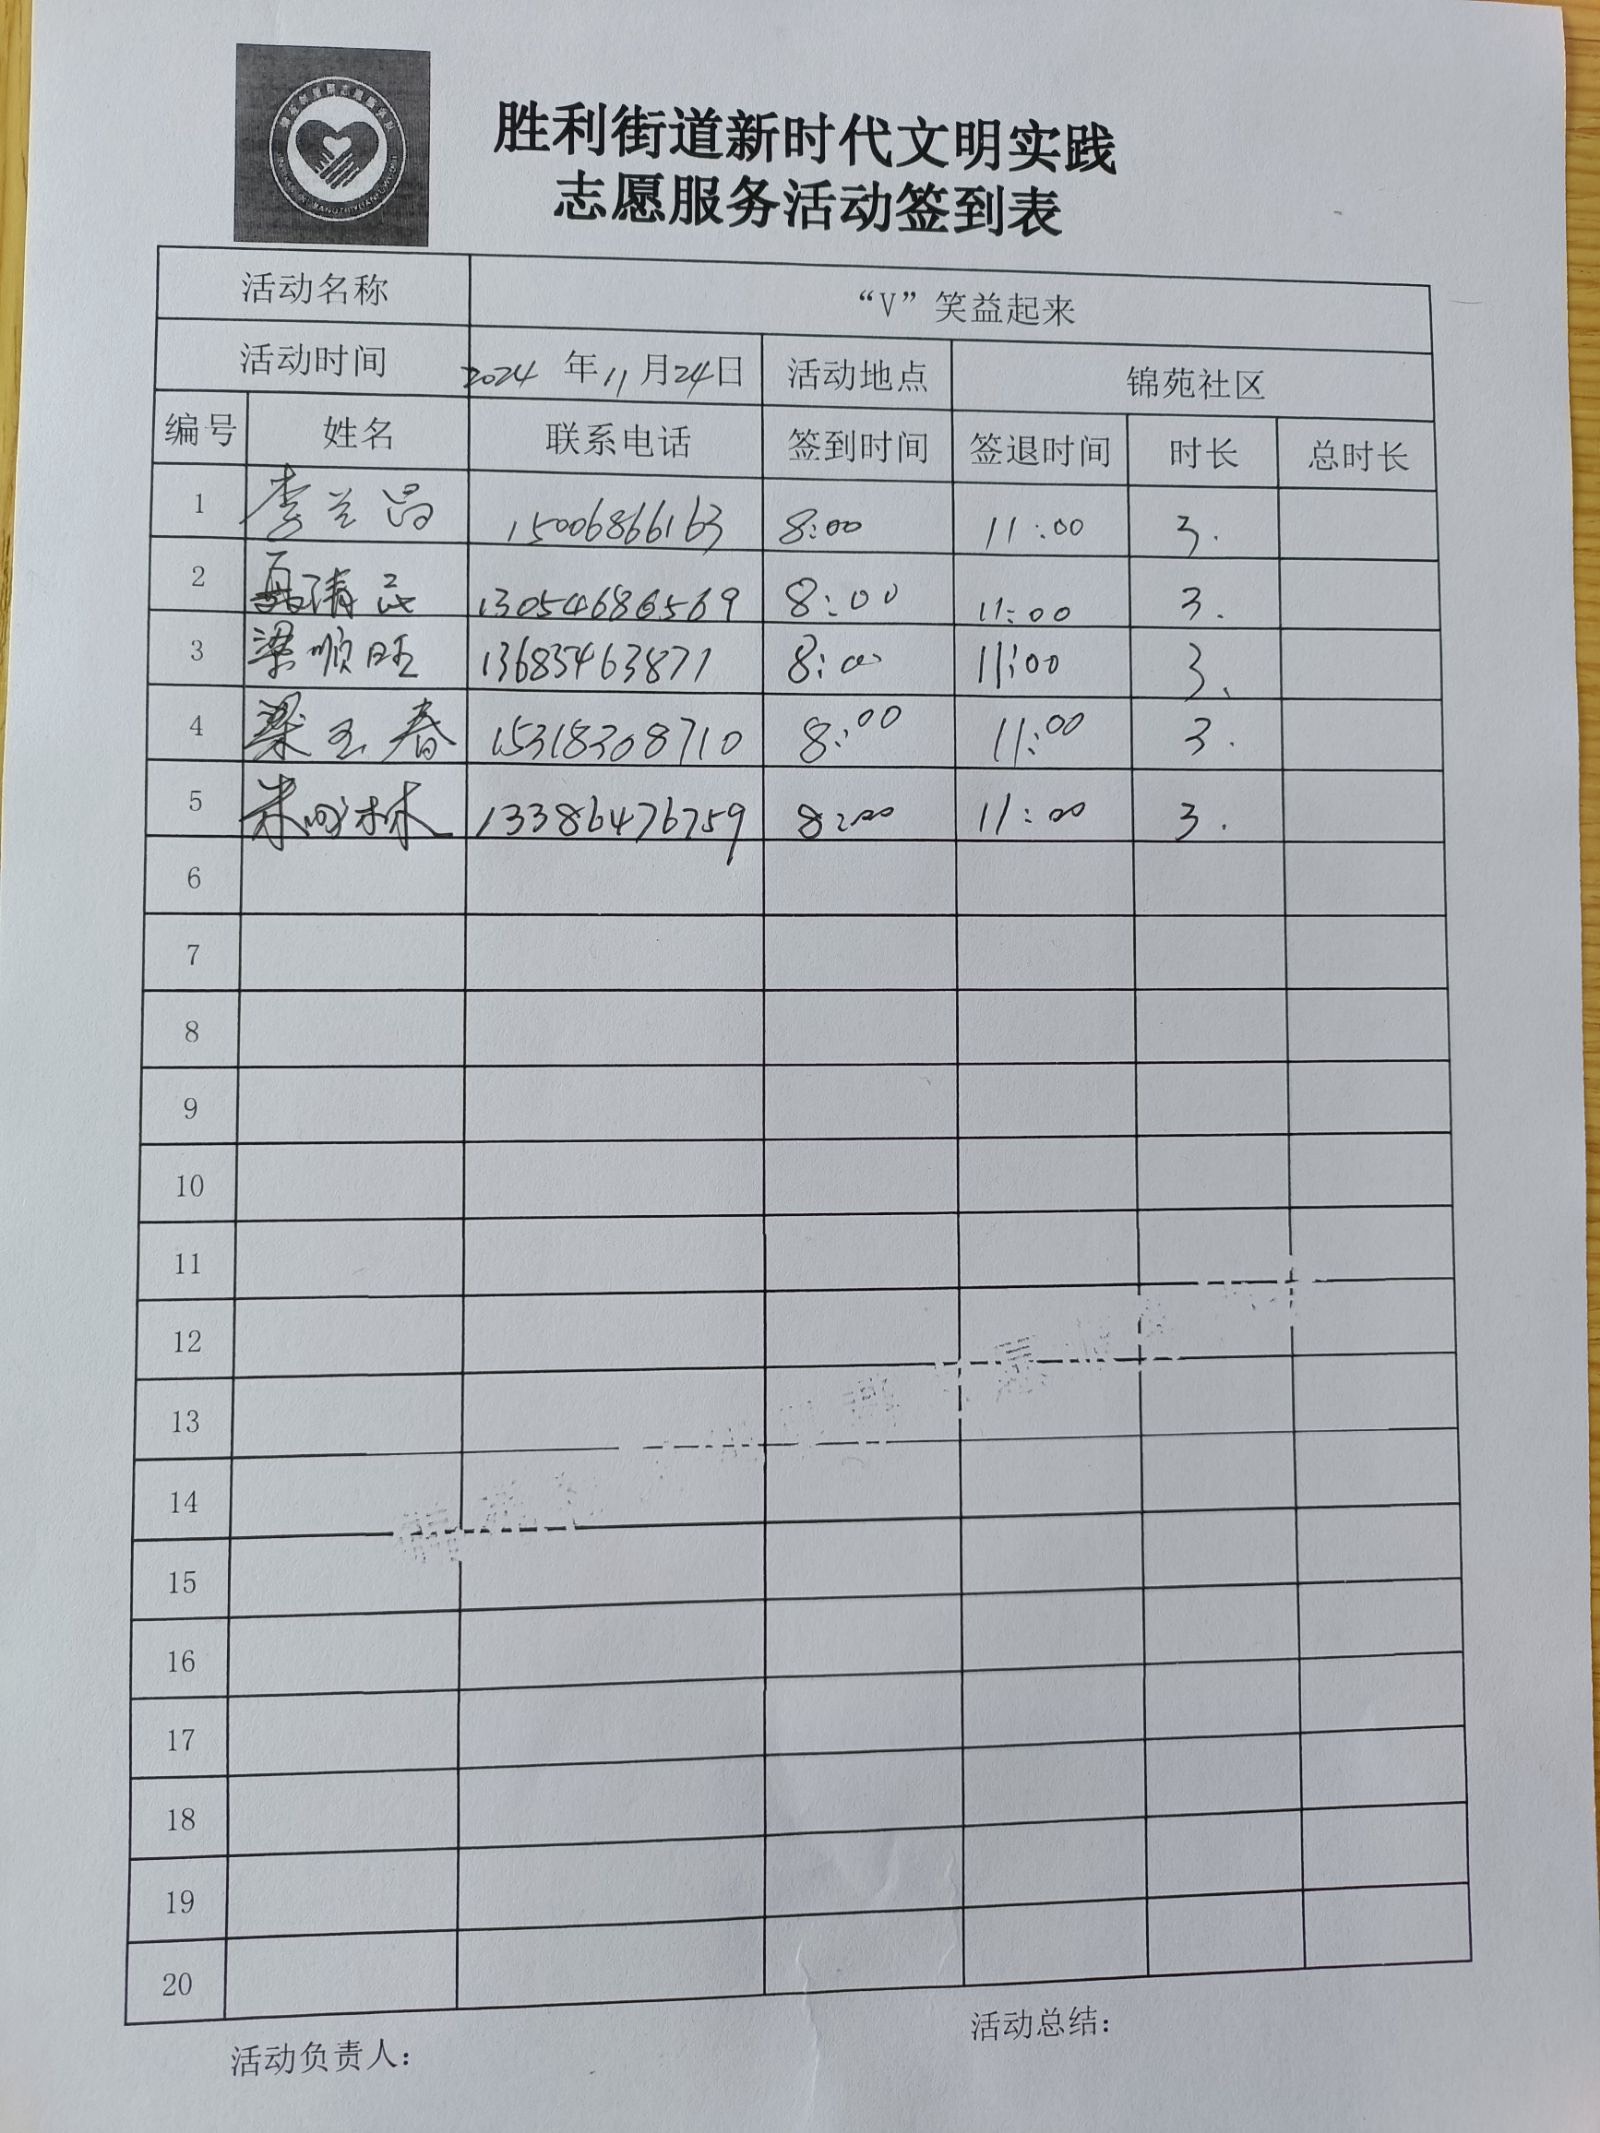 胜利街道新时代文明实践
志愿服务活动签到表
活动名称 “V”笑益起来
活动时间 2024 年 11 月 24 日 活动地点 锦苑社区
编号 姓名 联系电话 签到时间 签退时间 时长 总时长
1 李兰昌 15006866163 8:00 11:00 3.
2 13054686569 8:00 11:00 3.
3 梁顺旺 13685463871 8:00 11:00 3、
4 梁玉春 15318308710 8:00 11:00 3.
5 13386476759 8:00 11:00 3.
6
7
8
9
10
11
12
13
14
15
16
17
18
19
20
活动负责人： 活动总结：